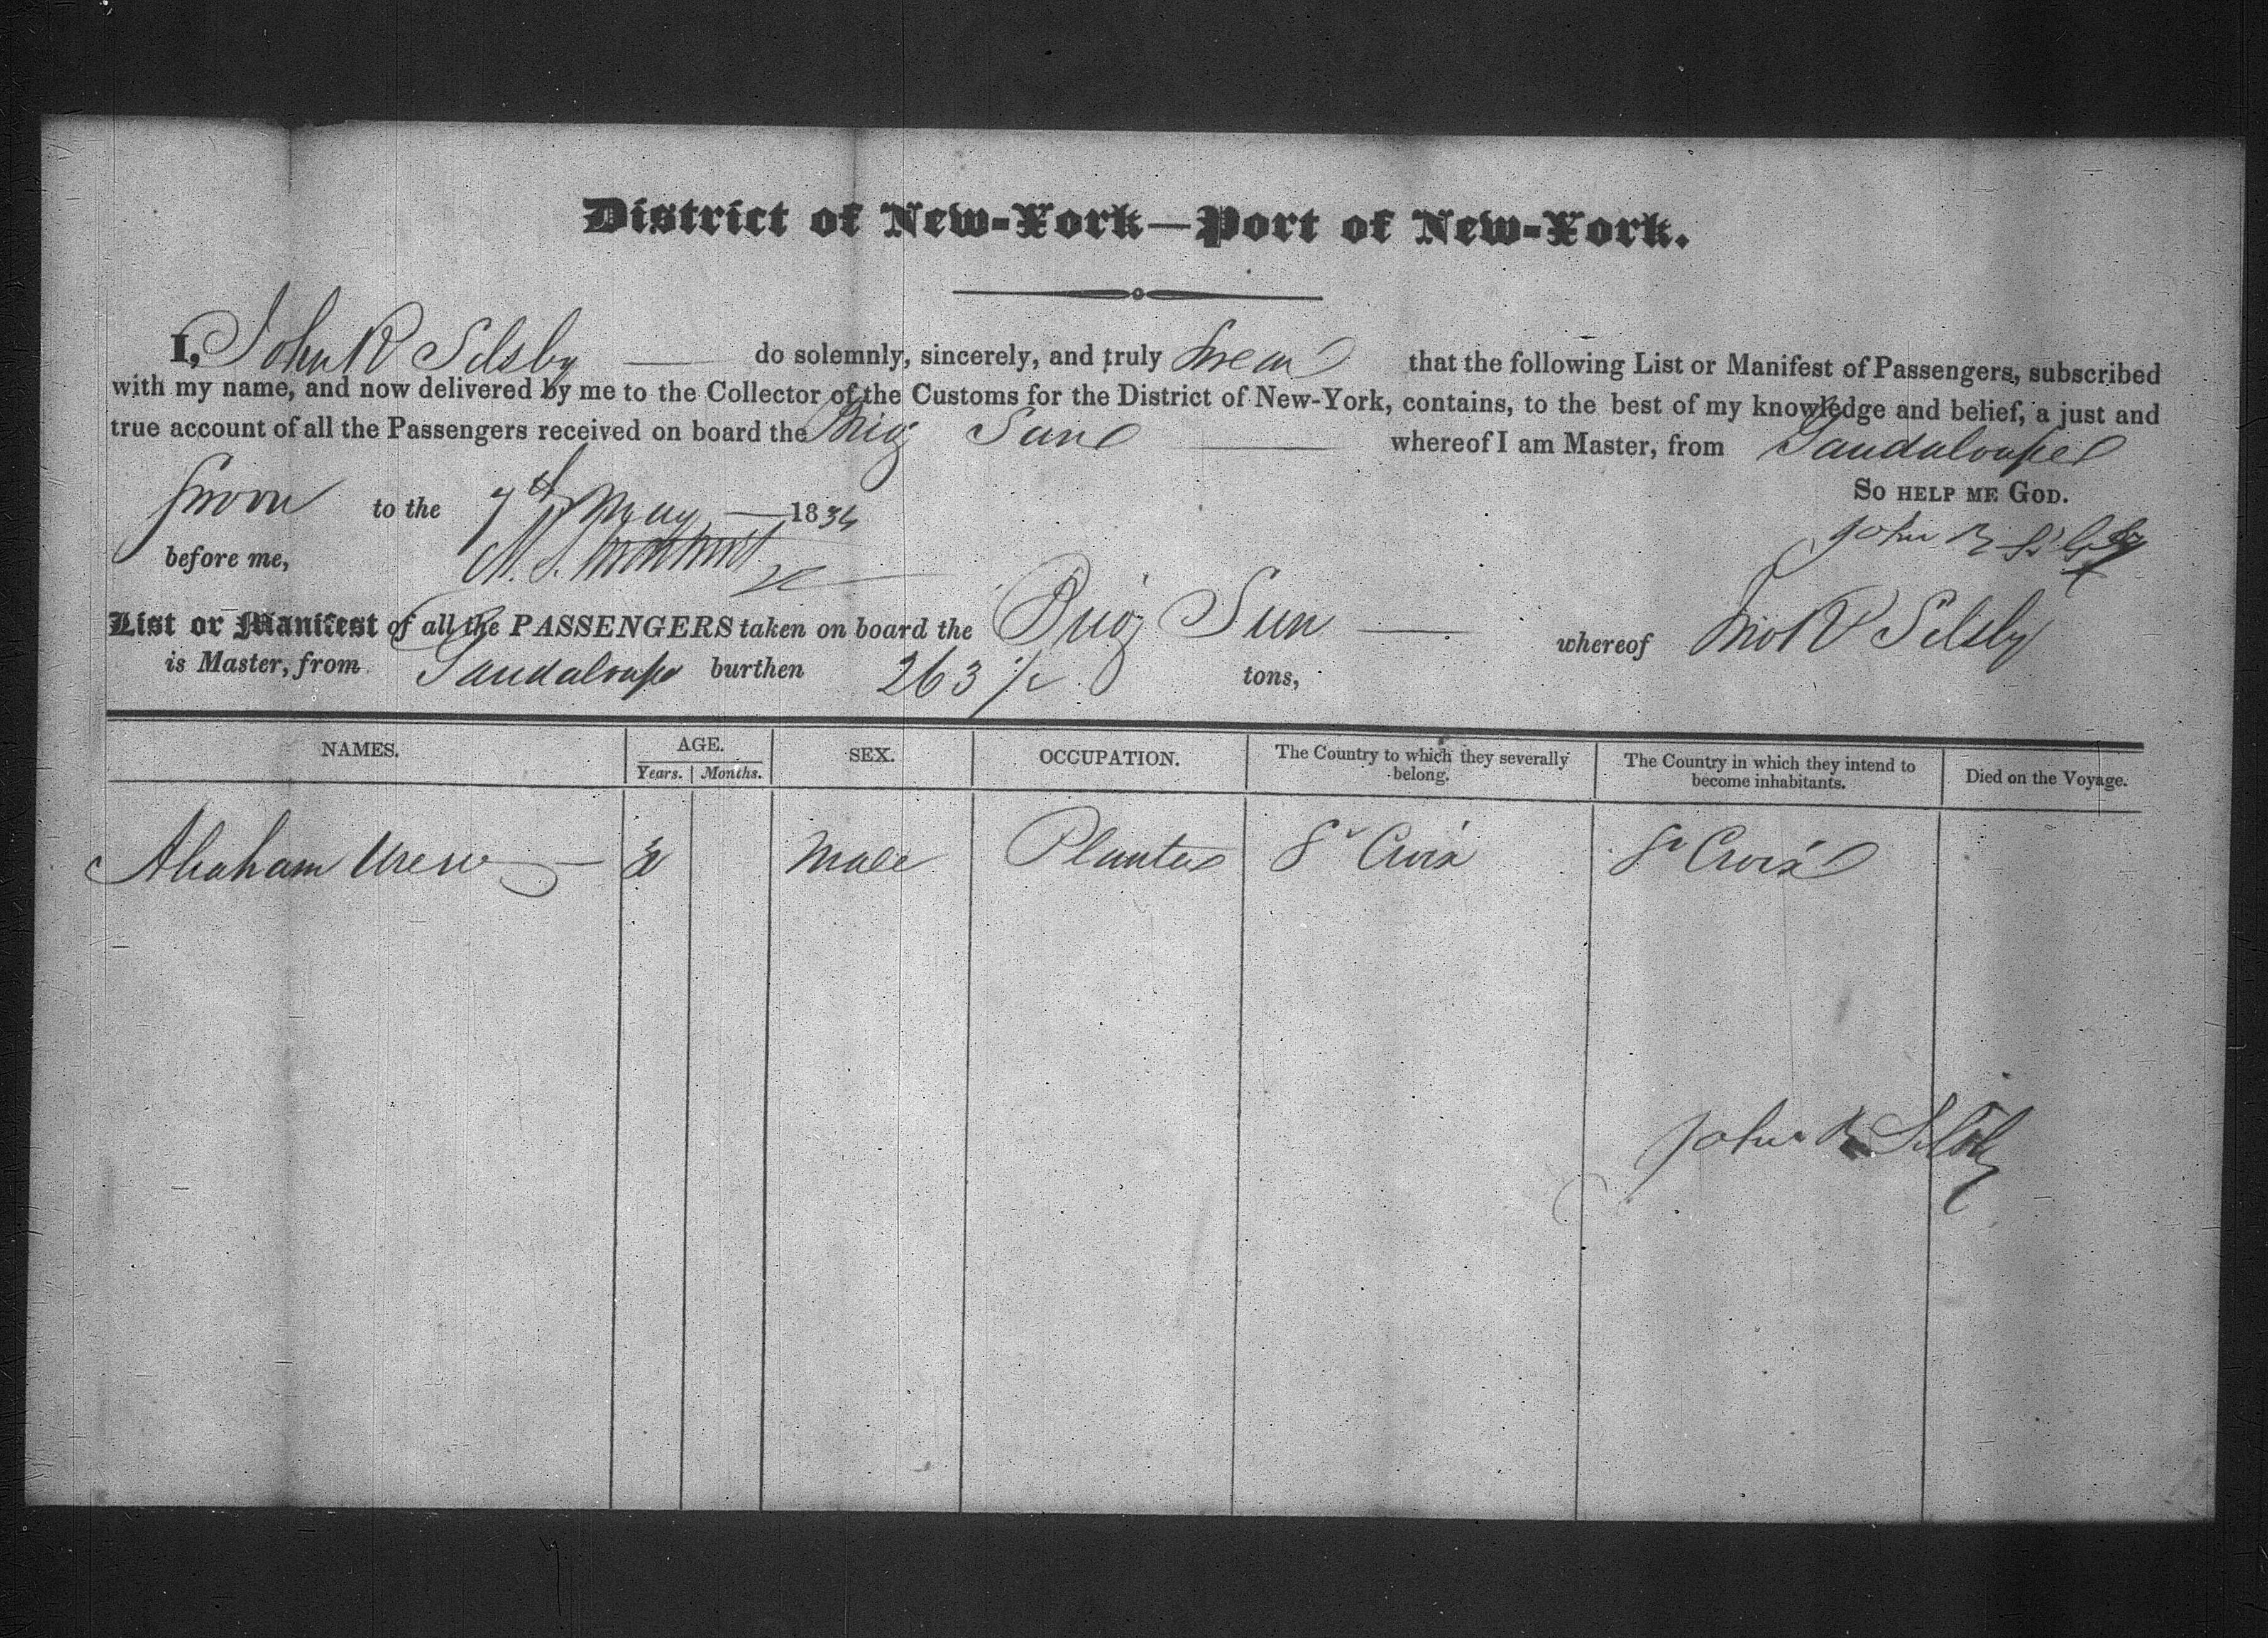 District of New-York—Port of New-York.
I, John R Selsby do solemnly, sincerely, and truly Swear that the following List or Manifest of Passengers, subscribed
with my name, and now delivered by me to the Collector of the Customs for the District of New-York, contains, to the best of my knowledge and belief, a just and
true account of all the Passengers received on board the Brig Sun whereof I am Master, from Gaudaloupe
Sworn to the 7th May 1834 So help me God.
before me, John R Selsby
List or Manifest of all the PASSENGERS taken on board the Brig Sun whereof Jno R Selsby
is Master, from Gaudaloupe burthen 263 tons,
NAMES. AGE. SEX. OCCUPATION. The Country to which they severally belong. The Country in which they intend to become inhabitants. Died on the Voyage.
Years. Months.
Abraham Male Planter St Croix St Croix
John R Selsby